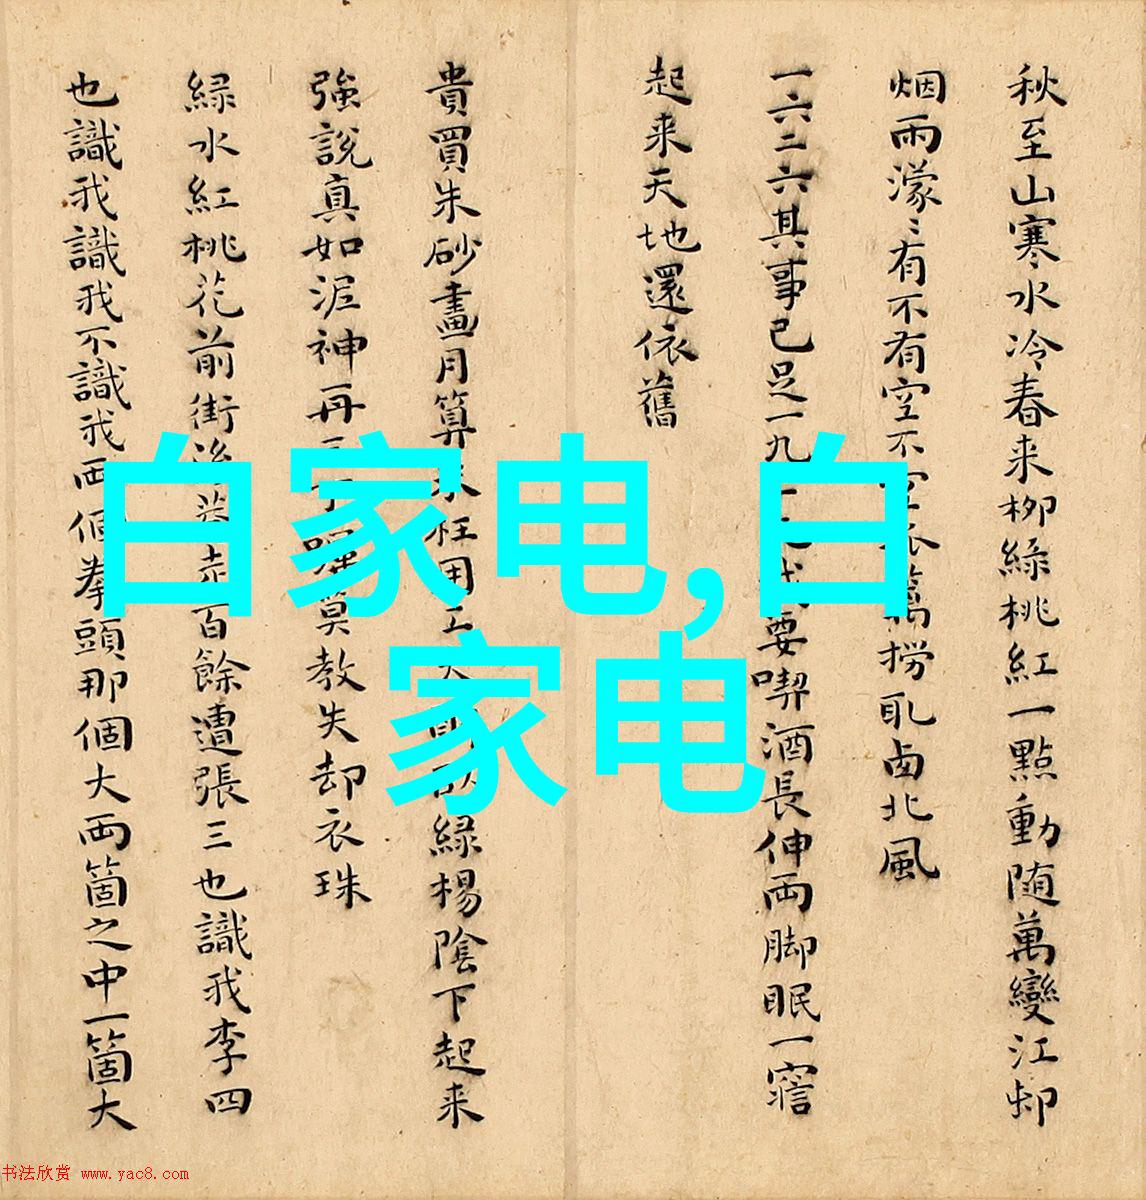 秋至山寒水冷春来柳綠桃紅一點動随萬變江邨
烟雨濛〻有不有空不空 籬撈取西北風
一六二六其事已足一九 要喫酒長伸両脚眠一寤
起来天地還依舊
貴買朱砂畫月算来枉用工 綠楊陰下起来
強說真如泥神再三 囑莫教失却衣珠
緑水紅桃花前街後巷走百餘遭張三也識我李四
也識我識我不識我両個拳頭那個大両箇之中一箇大
白家电,白
家电
书法欣赏 www.yac8.com